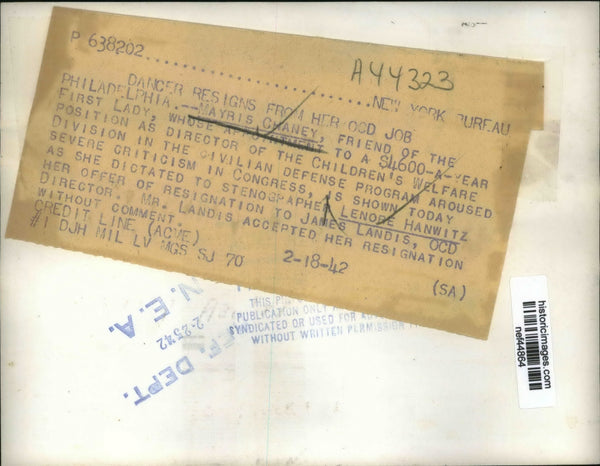 P 638202
A44323
NEW YORK BUREAU
DANCER RESIGNS FROM HER OCD JOB
PHILADELPHIA.--MAYRIS CHANEY, FRIEND OF THE
FIRST LADY, WHOSE APPOINTMENT TO A $4600-A-YEAR
POSITION AS DIRECTOR OF THE CHILDREN'S WELFARE
DIVISION IN THE CIVILIAN DEFENSE PROGRAM AROUSED
SEVERE CRITICISM IN CONGRESS, IS SHOWN TODAY
AS SHE DICTATED TO STENOGRAPHER LENORE HANWITZ
HER OFFER OF RESIGNATION TO JAMES LANDIS, OCD
DIRECTOR. MR. LANDIS ACCEPTED HER RESIGNATION
WITHOUT COMMENT.
CREDIT LINE (ACME)
#1 DJH MIL LV MGS SJ 70 2-18-42 (SA)
THIS
PUBLICATION ONLY
SYNDICATED OR USED FOR
WITHOUT WRITTEN PERMISSION
DEPT.
N. E. A.
historicimages.com
nef44864